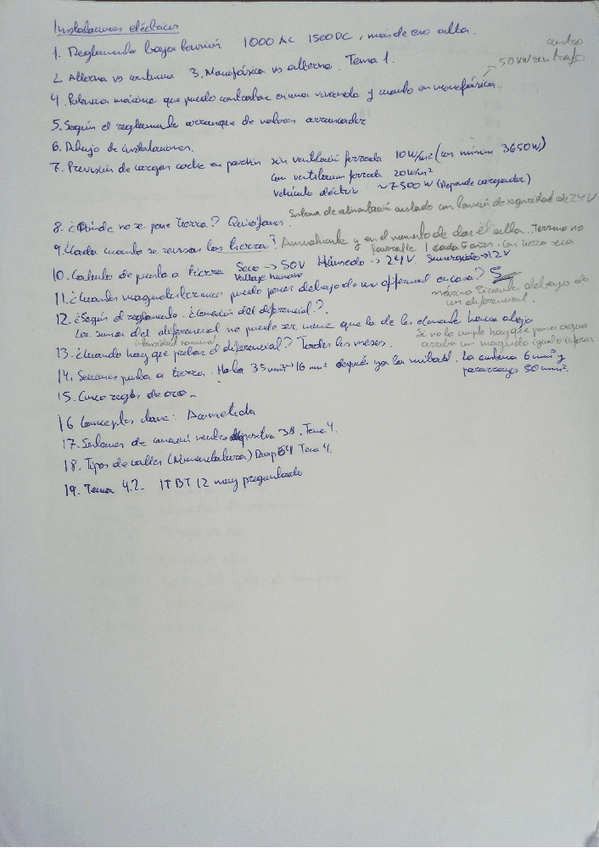 Instalaciones eléctricas
1. Reglamento baja tensión 1000 AC 1500 DC, más de eso alta.
centro
50 kW sin trafo
2. Alterna vs continua 3. Monofásica vs alterna. Tema 1.
4. Potencia máxima que puedo contratar en una vivienda y cuando en monofásica
5. Según el reglamento arranque de motores arrancador
6. Dibujo de instalaciones.
7. Previsión de cargas coche en parkin sin ventilación forzada 10 W/m2 (con mínimo 3650W)
con ventilación forzada 20W/m2
vehículo eléctrico ~7500 W (depende cargador)
8. ¿Dónde no se pone tierra? Quirófanos. Sistema de alimentación aislado con tensión de seguridad de 24 V
9. ¿Cada cuanto se revisan las tierras? Anualmente y en el momento de dar el alta. Terreno no
favorable 1 cada 5 años. Con tierra seca
10. Calculo de puesta a tierra Seco -> 50V Húmedo -> 24V. Sumergido -> 12V
Voltaje humano
11. ¿Cuantos magnetotérmicos puedo poner debajo de un diferencial en casa? 5
máximo circuitos debajo de un diferencial.
12. ¿Según el reglamento. ¿Conexión del diferencial?.
La suma del diferencial no puede ser menor que la de los elementos hacia abajo
intensidad nominal
Si no lo cumple hay que poner aguas
arriba un magneto igual o inferior
13. ¿Cuando hay que probar el diferencial? Todos los meses.
14. Secciones puesta a tierra. Hasta 35 mm2 -> 16 mm2 después ya la mitad. La antena 6 mm2 y
pararrayos 50 mm2.
15. Cinco reglas de oro.
16 Conceptos clave: Acometida
17. Sistemas de conexión neutro diapositiva 38. Tema 4.
18. Tipos de cables (Nomenclatura) Diap 64 Tema 4.
19. Tema 4.2. ITBT 12 muy preguntado